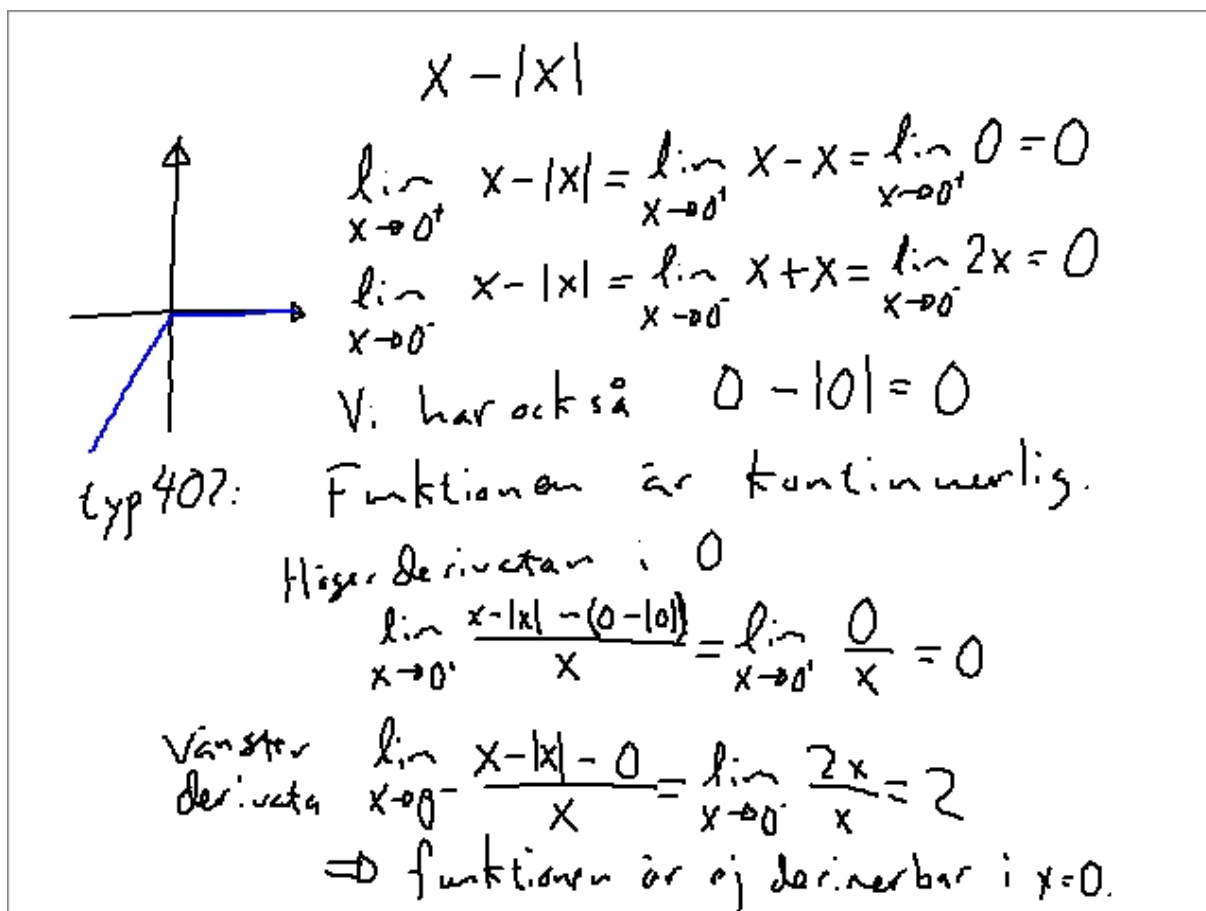 x - |x|
lim x→0⁺ x - |x| = lim x→0⁺ x - x = lim x→0⁺ 0 = 0
lim x→0⁻ x - |x| = lim x→0⁻ x + x = lim x→0⁻ 2x = 0
Vi har också 0 - |0| = 0
typ 402: Funktionen är kontinuerlig.
Högerderivatan i 0
lim x→0⁺ (x - |x| - (0 - |0|))/x = lim x→0⁺ 0/x = 0
Vänster derivata lim x→0⁻ (x - |x| - 0)/x = lim x→0⁻ 2x/x = 2
⇒ funktionen är ej deriverbar i x=0.